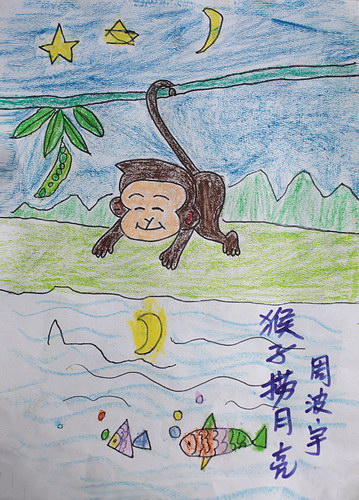 猴子捞月亮
周波宇